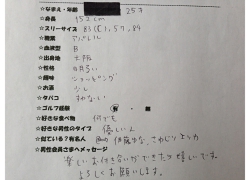 ☆なまえ・年齢 25才
☆身長 152cm
☆スリーサイズ 83(C),57,84
☆職業 アパレル
☆血液型 B
☆出身地 大阪
☆性格 明るい
☆趣味 ショッピング
☆お酒 少し
☆タバコ 吸わない
☆ゴルフ経験 有・無
☆好きな食べ物 何でも
☆好きな男性のタイプ 優しい人
☆似ている?有名人
☆男性会員さまへメッセージ
楽しいお付き合いができたら嬉しいです。
よろしくお願いします。